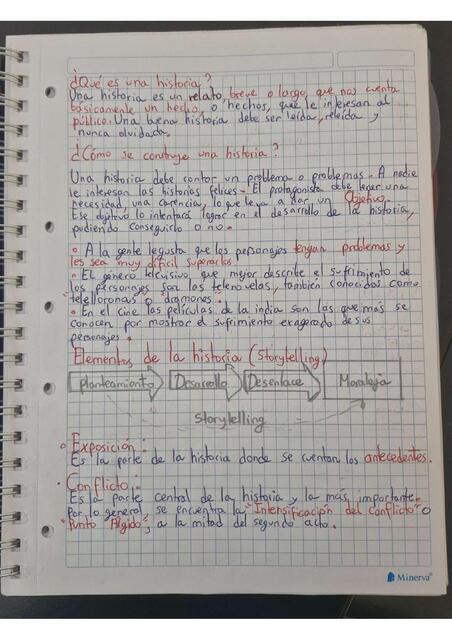 ¿Qué es una historia?
Una historia es un relato, breve o largo, que nos cuenta
básicamente un hecho, o hechos, que le interesan al
público. Una buena historia debe ser leída, releída y
nunca olvidada.
¿Cómo se construye una historia?
Una historia debe contar un problema o problemas. A nadie
le interesan las historias felices. El protagonista debe tener una
necesidad, una carencia, lo que lleva a dar un Objetivo.
Ese objetivo lo intentará lograr en el desarrollo de la historia,
pudiendo conseguirlo o no.
• A la gente le gusta que los personajes tengan problemas y
les sea muy difícil superarlos.
• El género televisivo que mejor describe el sufrimiento de
los personajes son las telenovelas, también conocidas como
"telelloronas" o "dramones".
• En el cine las películas de la india son las que más se
conocen por mostrar el sufrimiento exagerado de sus
personajes.
Elementos de la historia (Storytelling)
Planteamiento Desarrollo Desenlace Moraleja
Storytelling
• Exposición:
Es la parte de la historia donde se cuentan los antecedentes.
• Conflicto:
Es la parte central de la historia y la más importante.
Por lo general, se encuentra la "Intensificación del conflicto" o
"Punto Álgido", a la mitad del segundo acto.
Minerva